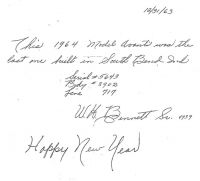 12/31/63
This 1964 Model Avanti was the
last one built in South Bend Ind
Serial # 5643
Body # 3902
Fone 717
W.H. Bennett Sr. 1939
Happy New Year